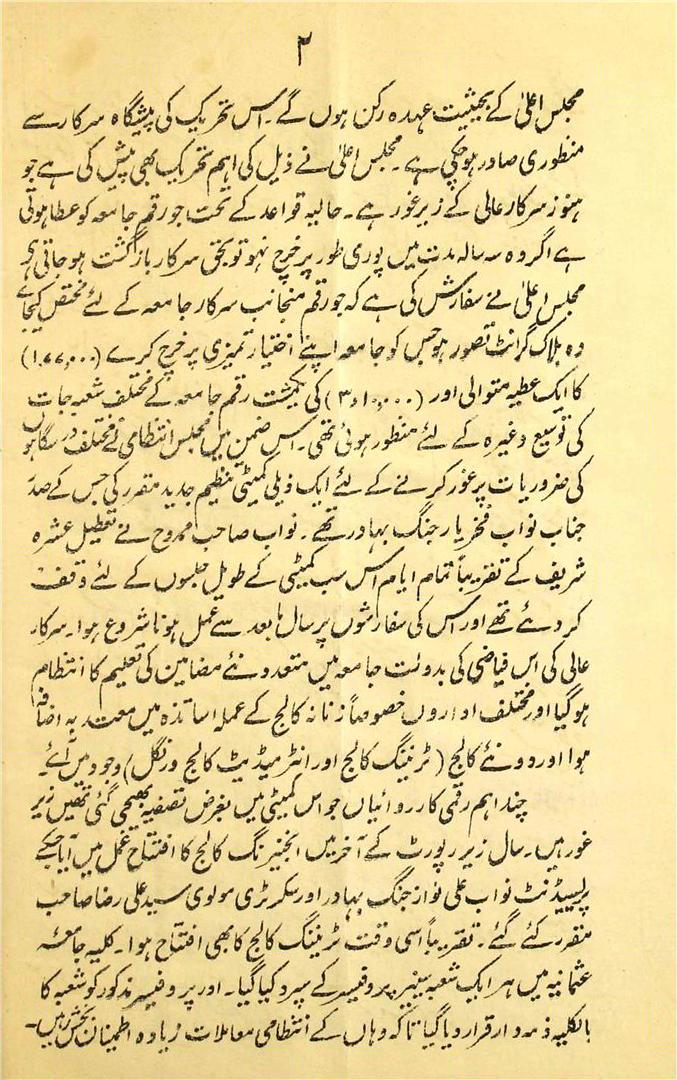 ۲
مجلس اعلیٰ کے بحیثیت عہدہ رکن ہوں گے۔ اس تحریک کی پیشگاہ سرکار سے
منظوری صادر ہوچکی ہے۔ مجلس اعلیٰ نے ذیل کی اہم تحریک بھی پیش کی ہے جو
ہنوز سرکار عالی کے زیر غور ہے۔ حالیہ قواعد کے تحت جو رقم جامعہ کو عطا ہوتی
ہے اگر وہ سہ سالہ مدت میں پوری طور پر خرچ نہو تو بحق سرکار بازگشت ہوجاتی ہے
مجلس اعلیٰ نے سفارش کی ہے کہ جو رقم منجانب سرکار جامعہ کے لئے مختص کیجائے
وہ بلاک گرانٹ تصور ہو جس کو جامعہ اپنے اختیار تمیزی پر خرچ کرے (۱،۷۷،۰۰۰)
کا ایک عطیہ متوالی اور (۳،۱۰،۰۰۰) کی یکمشت رقم جامعہ کے مختلف شعبہ جات
کی توسیع وغیرہ کے لئے منظور ہوئی تھی۔ اس ضمن میں مجلس انتظامی نے مختلف درسگاہوں
کی ضروریات پر غور کرنے کے لئے ایک ذیلی کمیٹی تنظیم جدید مقرر کی جس کے صدر
جناب نواب فخر یار جنگ بہادر تھے۔ نواب صاحب ممدوح نے تعطیل عشرہ
شریف کے تقریباً تمام ایام اس سب کمیٹی کے طویل جلسوں کے لئے وقف
کر دئے تھے اور اس کی سفارشوں پر سال مابعد سے عمل ہونا شروع ہوا۔ سرکار
عالی کی اس فیاضی کی بدولت جامعہ میں متعدد نئے مضامین کی تعلیم کا انتظام
ہوگیا اور مختلف اداروں خصوصاً زنانہ کالج کے عملہ اساتذہ میں معتد بہ اضافہ
ہوا اور دو نئے کالج (ٹریننگ کالج اور انٹرمیڈیٹ کالج ورنگل) وجود میں آئے۔
چند اہم رقمی کارروائیاں جو اس کمیٹی میں بغرض تصفیہ بھیجی گئی تھیں زیر
غور ہیں۔ سال زیر رپورٹ کے آخر میں انجنیرنگ کالج کا افتتاح عمل میں آیا جسکے
پریسیڈنٹ نواب علی نواز جنگ بہادر اور سکرٹری مولوی سید علی رضا صاحب
مقرر کئے گئے۔ تقریباً اسی وقت ٹریننگ کالج کا بھی افتتاح ہوا۔ کلیہ جامعہ
عثمانیہ میں ہر ایک شعبہ سینیر پروفیسر کے سپرد کیا گیا۔ اور پروفیسر مذکور کو شعبہ کا
بالکلیہ ذمہ دار قرار دیا گیا تاکہ وہاں کے انتظامی معاملات زیادہ اطمینان بخش رہیں۔